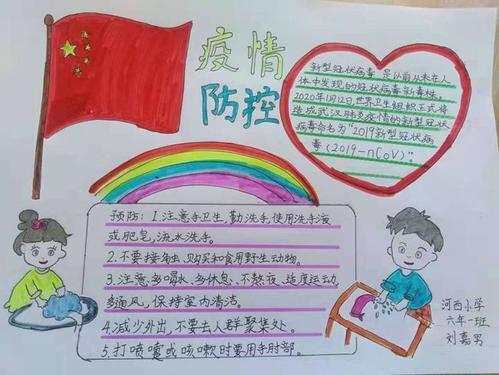 疫情
防控
新型冠状病毒是以前从未在人
体中发现的冠状病毒新毒株。
2020年1月12日,世界卫生组织正式将
造成武汉肺炎疫情的新型冠状
病毒命名为“2019新型冠状病
毒(2019-nCoV)”
预防:1.注意手卫生,勤洗手,使用洗手液
或肥皂,流水洗手。
2.不要接触、购买和食用野生动物。
3.注意多喝水、多休息、不熬夜、适度运动
多通风,保持室内清洁。
4.减少外出,不要去人群聚集处。
5.打喷嚏或咳嗽时要用手肘部。
河西小学
六年一班
刘嘉男